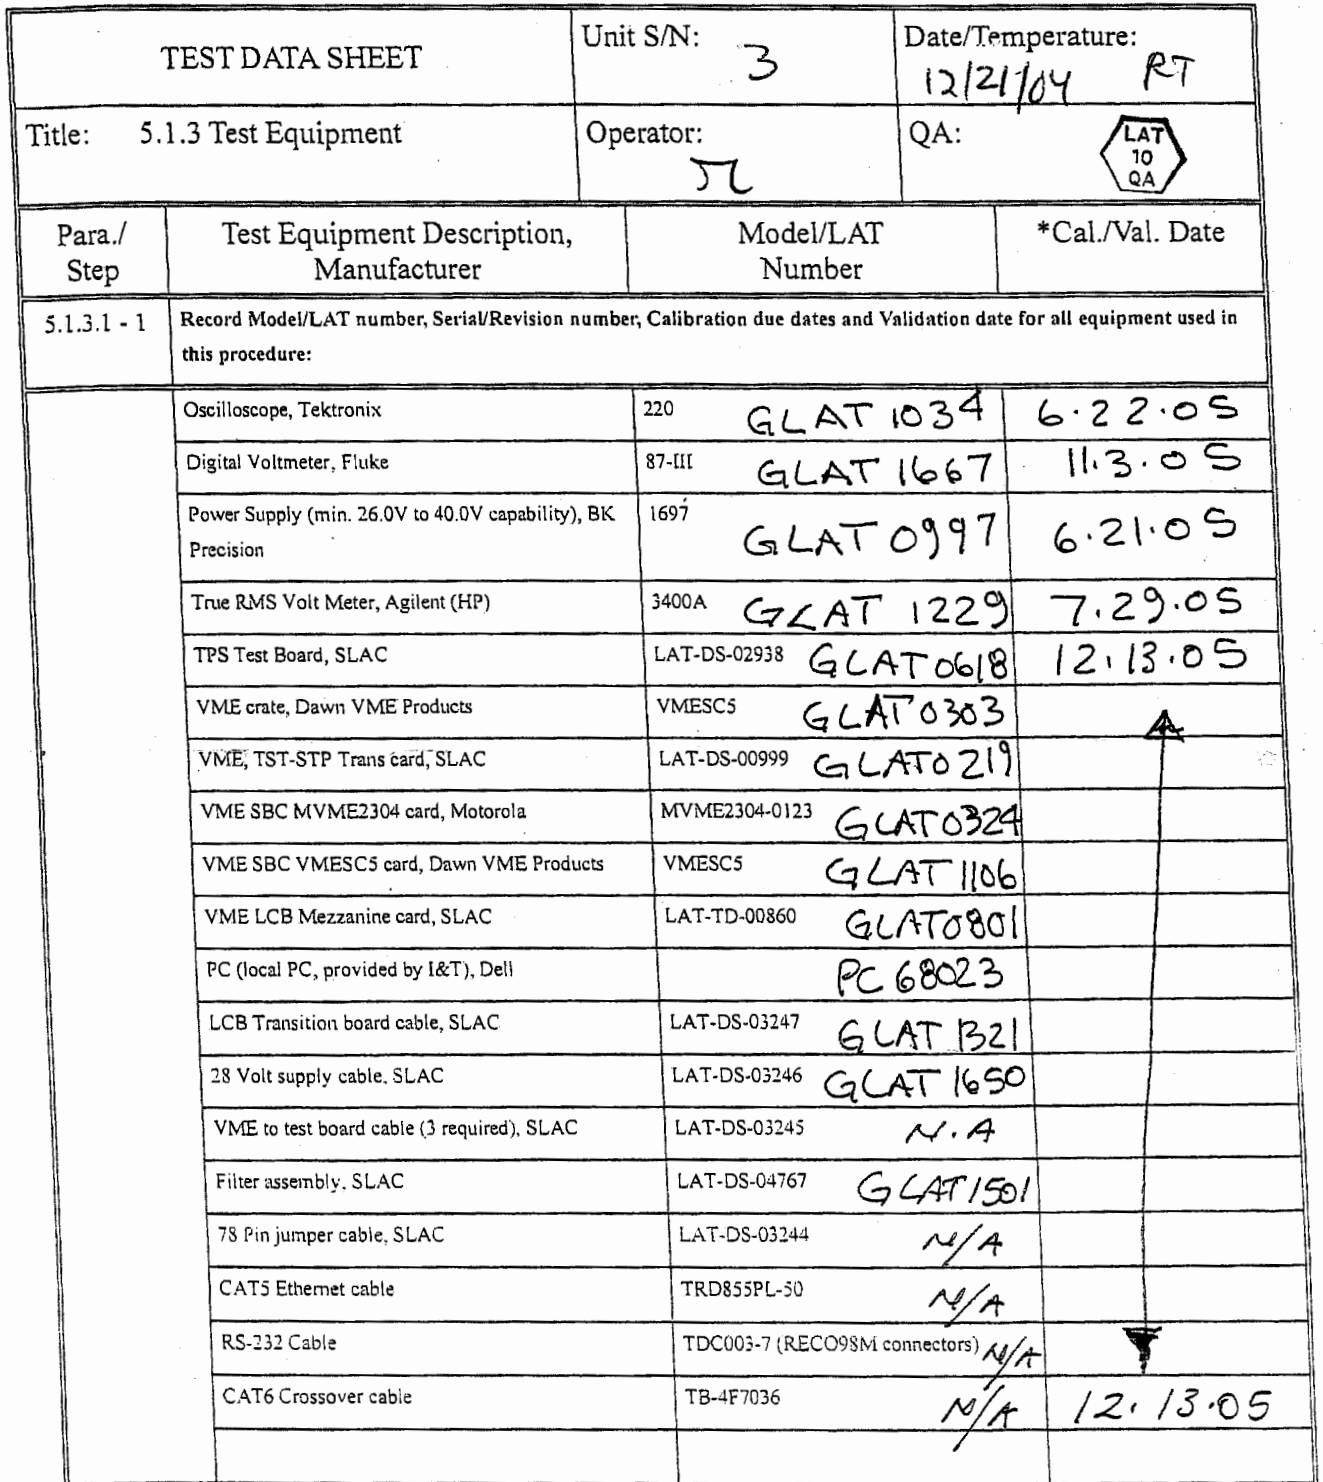 TEST DATA SHEET
Unit S/N: 3
Date/Temperature:
12/21/04 RT
Title: 5.1.3 Test Equipment
Operator:
QA:
LAT
10
QA
Para./
Step
Test Equipment Description,
Manufacturer
Model/LAT
Number
*Cal./Val. Date
5.1.3.1 - 1
Record Model/LAT number, Serial/Revision number, Calibration due dates and Validation date for all equipment used in
this procedure:
Oscilloscope, Tektronix 220 GLAT 1034 6.22.05
Digital Voltmeter, Fluke 87-III GLAT 1667 11.3.05
Power Supply (min. 26.0V to 40.0V capability), BK
Precision
1697 GLAT 0997 6.21.05
True RMS Volt Meter, Agilent (HP) 3400A GLAT 1229 7.29.05
TPS Test Board, SLAC LAT-DS-02938 GLAT0618 12.13.05
VME crate, Dawn VME Products VMESC5 GLAT0303
VME, TST-STP Trans card, SLAC LAT-DS-00999 GLAT0219
VME SBC MVME2304 card, Motorola MVME2304-0123 GLAT0324
VME SBC VMESC5 card, Dawn VME Products VMESC5 GLAT 1106
VME LCB Mezzanine card, SLAC LAT-TD-00860 GLAT0801
PC (local PC, provided by I&T), Dell PC 68023
LCB Transition board cable, SLAC LAT-DS-03247 GLAT 1321
28 Volt supply cable, SLAC LAT-DS-03246 GLAT 1650
VME to test board cable (3 required), SLAC LAT-DS-03245 N.A
Filter assembly, SLAC LAT-DS-04767 GLAT1501
78 Pin jumper cable, SLAC LAT-DS-03244 N/A
CAT5 Ethernet cable TRD855PL-50 N/A
RS-232 Cable TDC003-7 (RECO9SM connectors) N/A
CAT6 Crossover cable TB-4F7036 N/A 12.13.05